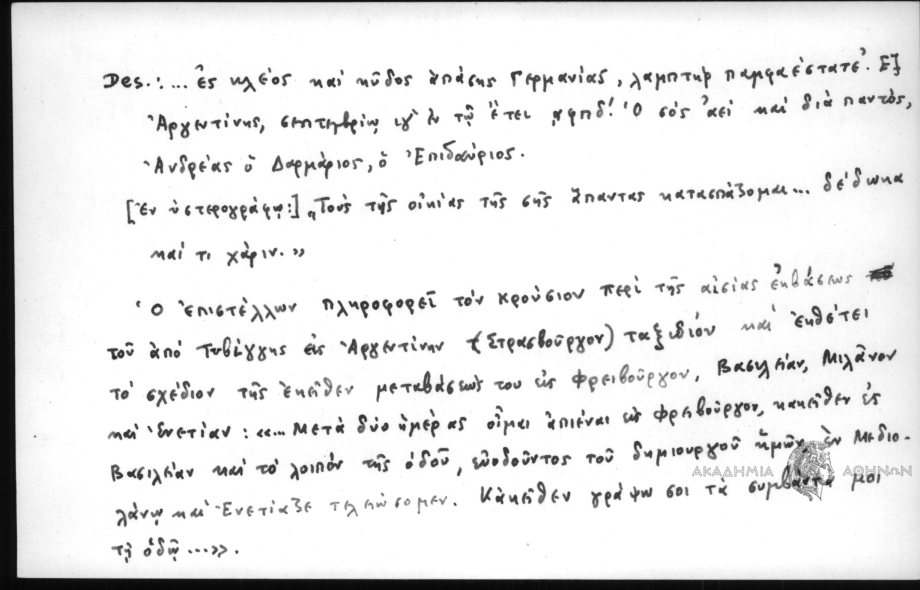 Des.: ... ἐς κλέος καὶ κῦδος ἁπάσης Γερμανίας, λαμπτὴρ παμφαέστατε. Ἐξ
Ἀργεντίνης, σεπτεμβρίῳ ιγʹ ἐν τῷ ἔτει ͵αφπδʹ. Ὁ σὸς ἀεὶ καὶ διὰ παντός,
Ἀνδρέας ὁ Δαρμάριος, ὁ Ἐπιδαύριος.
[Ἐν ὑστερογράφῳ:] „Τοὺς τῆς οἰκίας τῆς σῆς ἅπαντας κατασπάζομαι... δέδωκα
καί τι χάριν.»
Ὁ ἐπιστέλλων πληροφορεῖ τὸν Κρούσιον περὶ τῆς αἰσίας ἐκβάσεως
τοῦ ἀπὸ Τυβίγγης εἰς Ἀργεντίνην (Στρασβοῦργον) ταξιδίου καὶ ἐκθέτει
τὸ σχέδιον τῆς ἐκεῖθεν μεταβάσεώς του εἰς Φρειβοῦργον, Βασιλείαν, Μιλᾶνον
καὶ Ἐνετίαν: «... Μετὰ δύο ἡμέρας οἶμαι ἀπιέναι εἰς Φρειβοῦργον, κακεῖθεν ἐς
Βασιλείαν καὶ τὸ λοιπὸν τῆς ὁδοῦ, εὐοδοῦντος τοῦ δημιουργοῦ ἡμῶν, ἐν Μεδιο-
λάνῳ καὶ Ἐνετίαζε τελειώσομεν. Κἀκεῖθεν γράψω σοι τὰ συμβάντα μοι
τῇ ὁδῷ ...».
ΑΚΑΔΗΜΙΑ ΑΘΗΝΩΝ